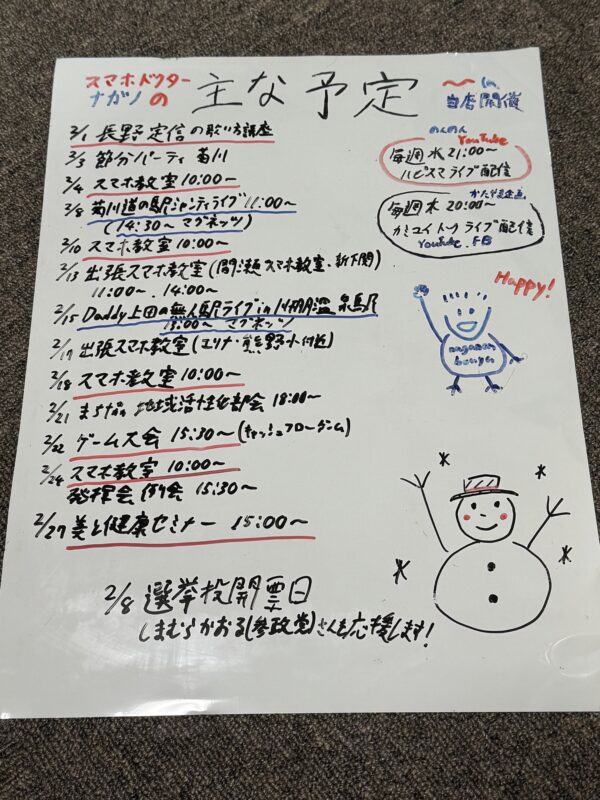 スマホドクター
ナガノの
主な予定
〜in
当店開催
2/1 長野定信の歌い方講座
2/3 節分パーティ 菊川
2/4 スマホ教室 10:00〜
2/8 菊川道の駅シャンティライブ 11:00〜
(14:30〜 マグネッツ)
2/10 スマホ教室 10:00〜
2/13 出張スマホ教室 (スマホ教室・新下関)
11:00〜 14:00〜
2/15 Daddy上田の無人駅ライブin川棚温泉駅
13:00〜 マグネッツ
2/17 出張スマホ教室 (エリア・熊野小付近)
2/18 スマホ教室 10:00〜
2/21 地域活性化部会 18:00〜
2/22 ゲーム大会 15:30〜 (キャッシュフローゲーム)
2/24 スマホ教室 10:00〜
発揮会 例会 15:30〜
2/27 美と健康セミナー 15:00〜
2/8 選挙投開票日
しまむらかおる(参政党)さんを応援します!
のんのん YouTube
毎週水 21:00〜
ハピスマライブ配信
毎週木 20:00〜
カミユイトークライブ配信
YouTube FB
Happy!